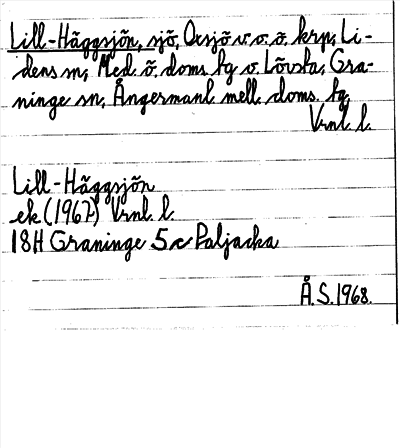 Lill-Häggsjön, sjö, Oxsjö v. o. ö. krp, Li-
dens sn, Med. ö. doms. tg o. Lövsta, Gra-
ninge sn, Ångermanl. mell. doms. tg,
Vrnl. l.
Lill-Häggsjön
ek (1967) Vrnl. l.
18H Graninge 5c Paljacka
Å.S. 1968.